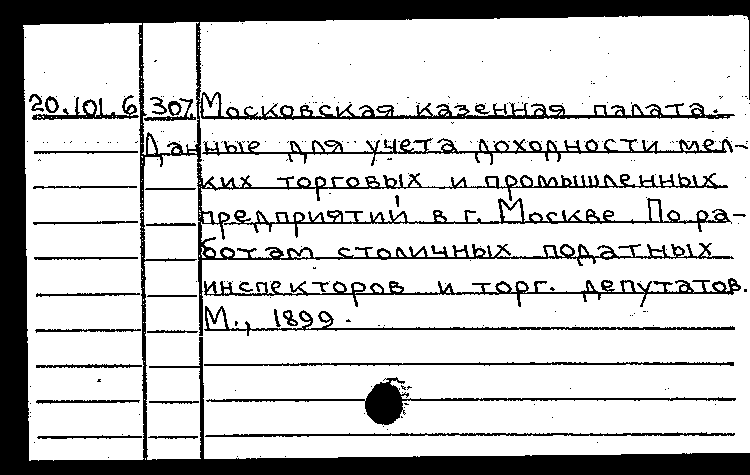 20.101.6 307 Московская казенная палата.
Данные для учета доходности мел-
ких торговых и промышленных
предприятий в г. Москве По ра-
ботам столичных податных
инспекторов и торг. депутатов.
М., 1899.